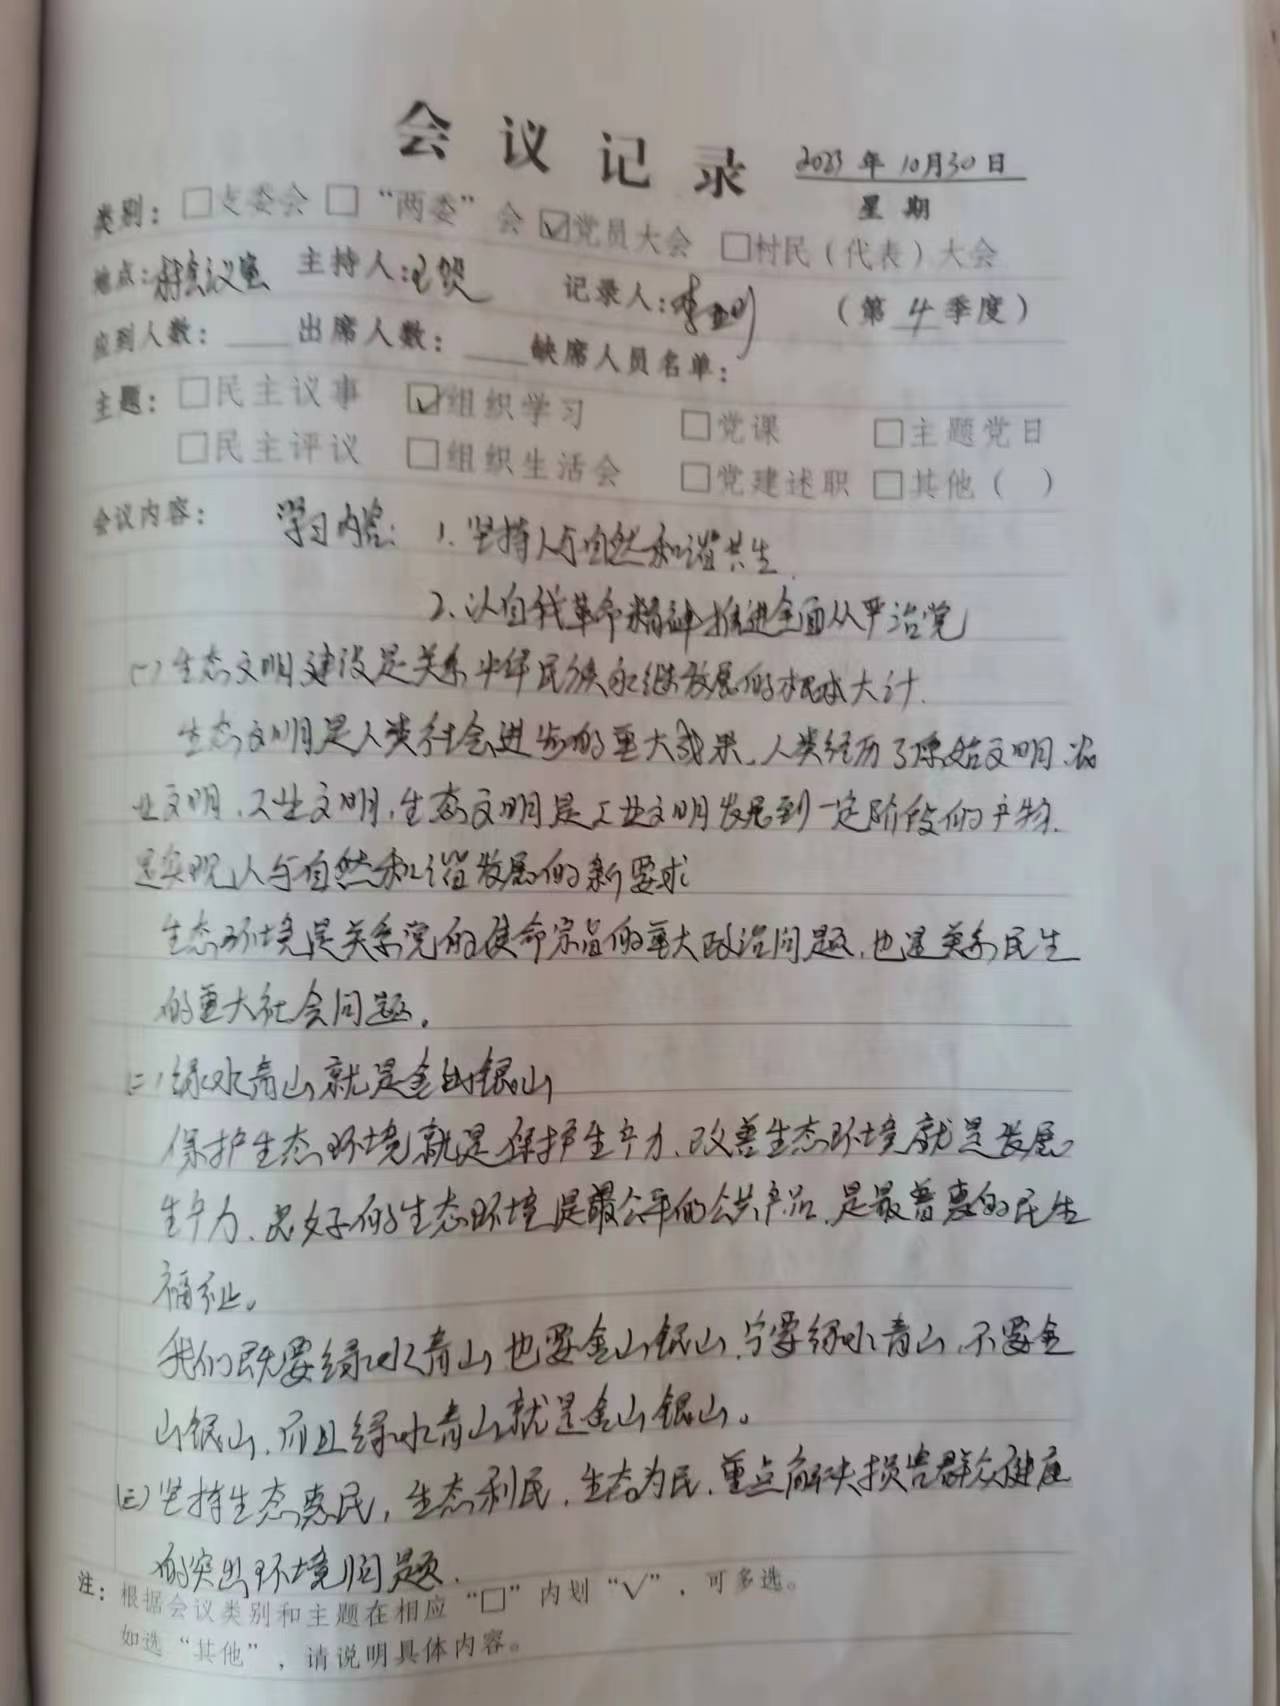 会议记录
2023年10月30日
星期
类别：□支委会 □“两委”会 ☑党员大会 □村民（代表）大会
地点：村会议室 主持人： 记录人： （第4季度）
应到人数：____出席人数：____缺席人员名单：
主题：□民主议事 ☑组织学习 □党课 □主题党日
□民主评议 □组织生活会 □党建述职 □其他（ ）
会议内容： 学习内容：1.坚持人与自然和谐共生.
2.以自我革命精神推进全面从严治党
(一)生态文明建设是关系中华民族永继发展的根本大计.
生态文明是人类社会进步的重大成果.人类经历了原始文明、农
业文明、工业文明,生态文明是工业文明发展到一定阶段的产物.
是实现人与自然和谐发展的新要求
生态环境是关系党的使命宗旨的重大政治问题,也是关系民生
的重大社会问题。
(二)绿水青山就是金山银山
保护生态环境就是保护生产力、改善生态环境就是发展
生产力、良好的生态环境是最公平的公共产品,是最普惠的民生
福祉。
我们既要绿水青山也要金山银山.宁要绿水青山,不要金
山银山,而且绿水青山就是金山银山。
(三)坚持生态惠民,生态利民,生态为民,重点解决损害群众健康
的突出环境问题.
注：根据会议类别和主题在相应“□”内划“√”，可多选。
如选“其他”，请说明具体内容。